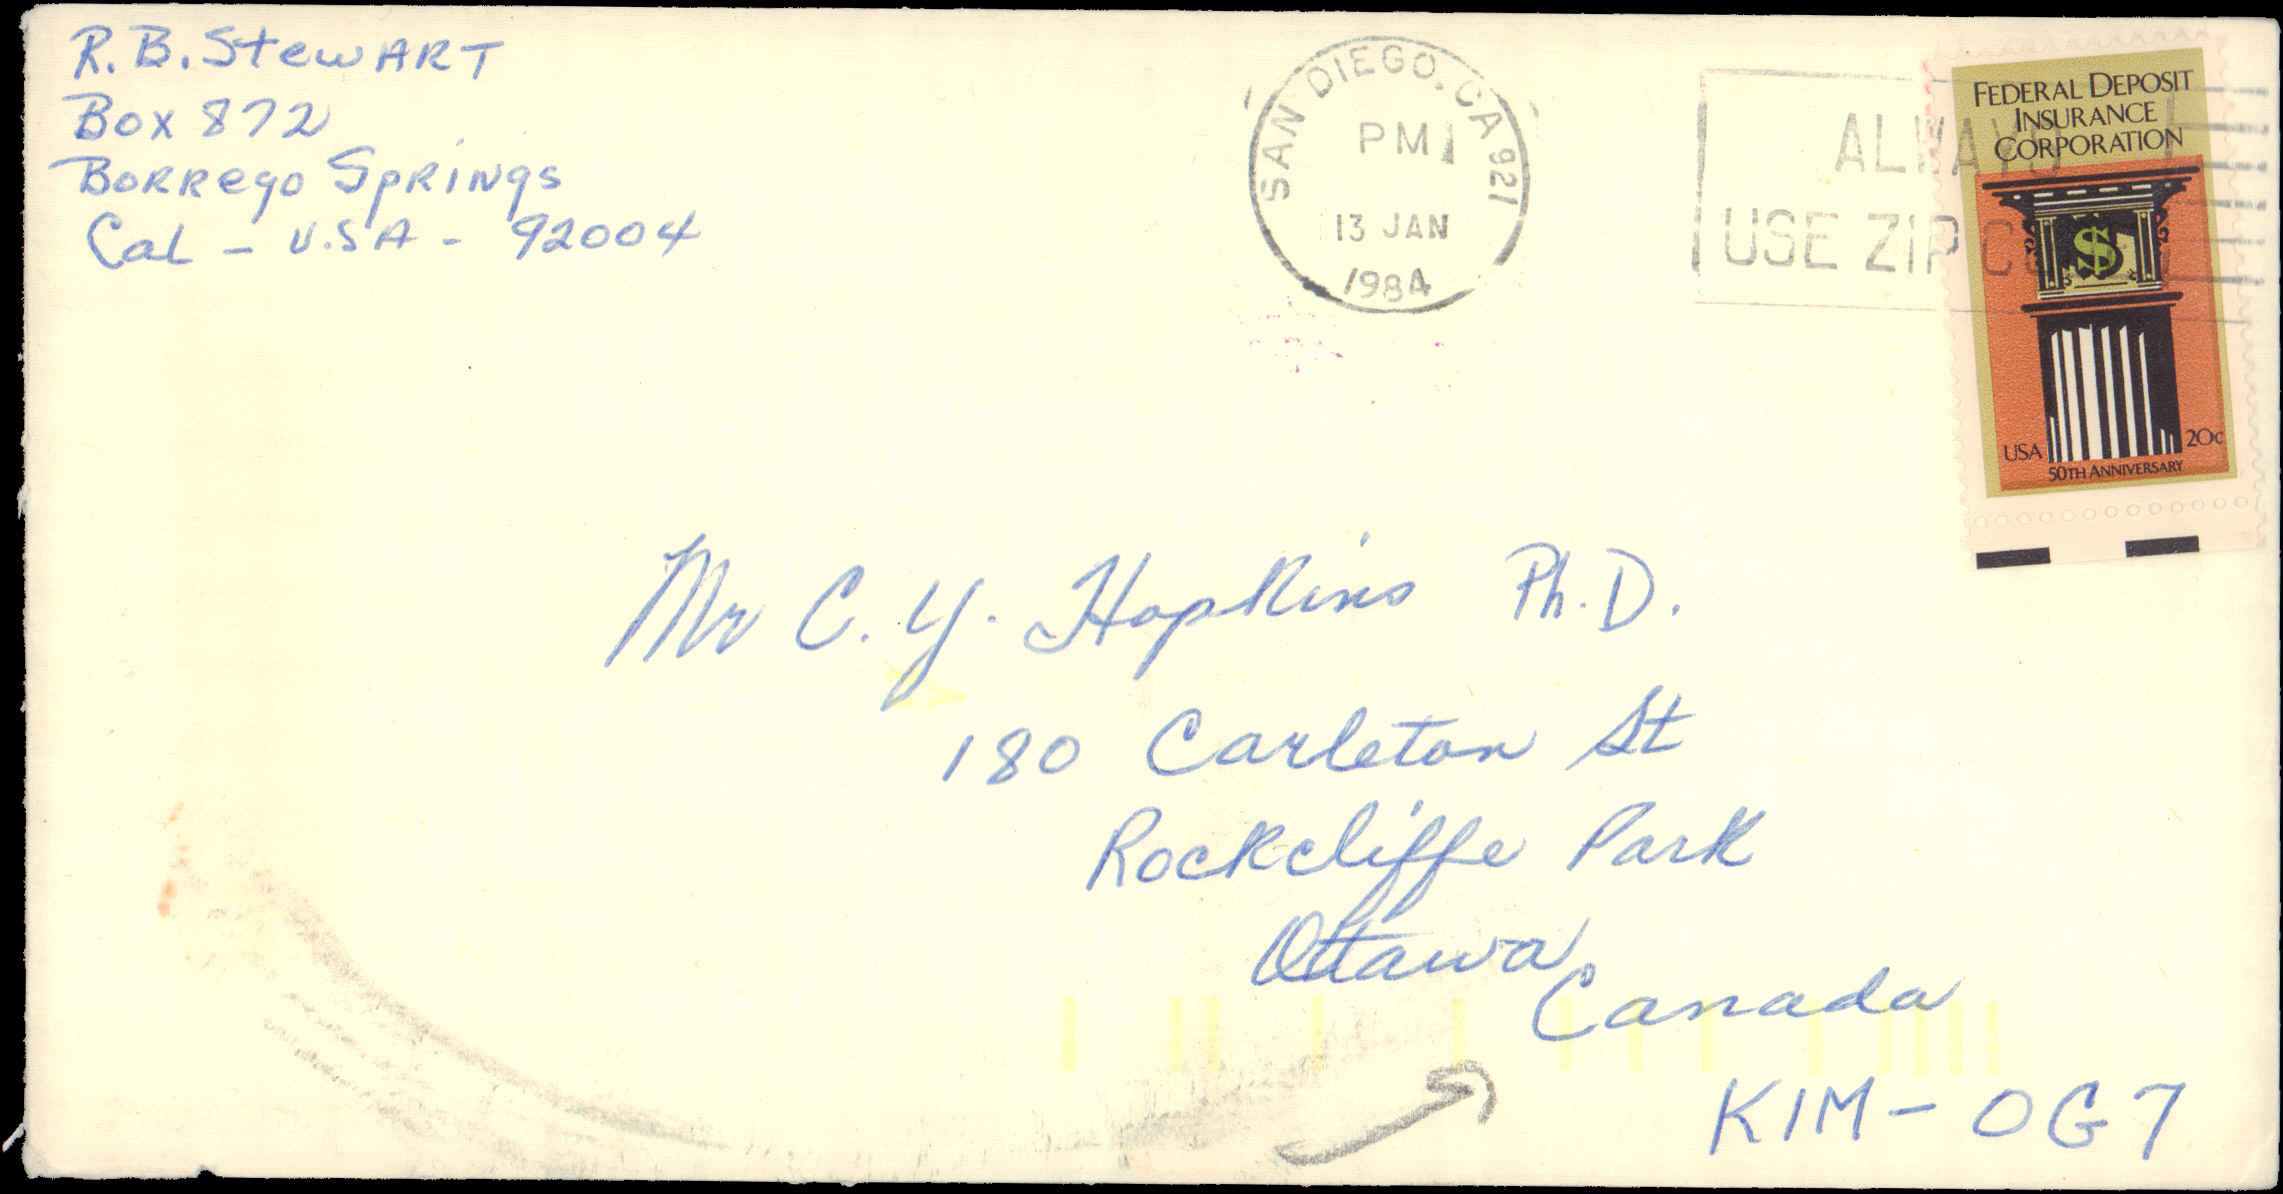 R. B. Stewart
Box 872
Borrego Springs
Cal - U.S.A - 92004
SAN DIEGO, CA 921
PM
13 JAN
1984
ALWAYS
USE ZIP CODE
FEDERAL DEPOSIT
INSURANCE
CORPORATION
$
USA 20c
50TH ANNIVERSARY
Mr C. Y. Hopkins Ph.D.
180 Carleton St
Rockcliffe Park
Ottawa
Canada
K1M-0G7